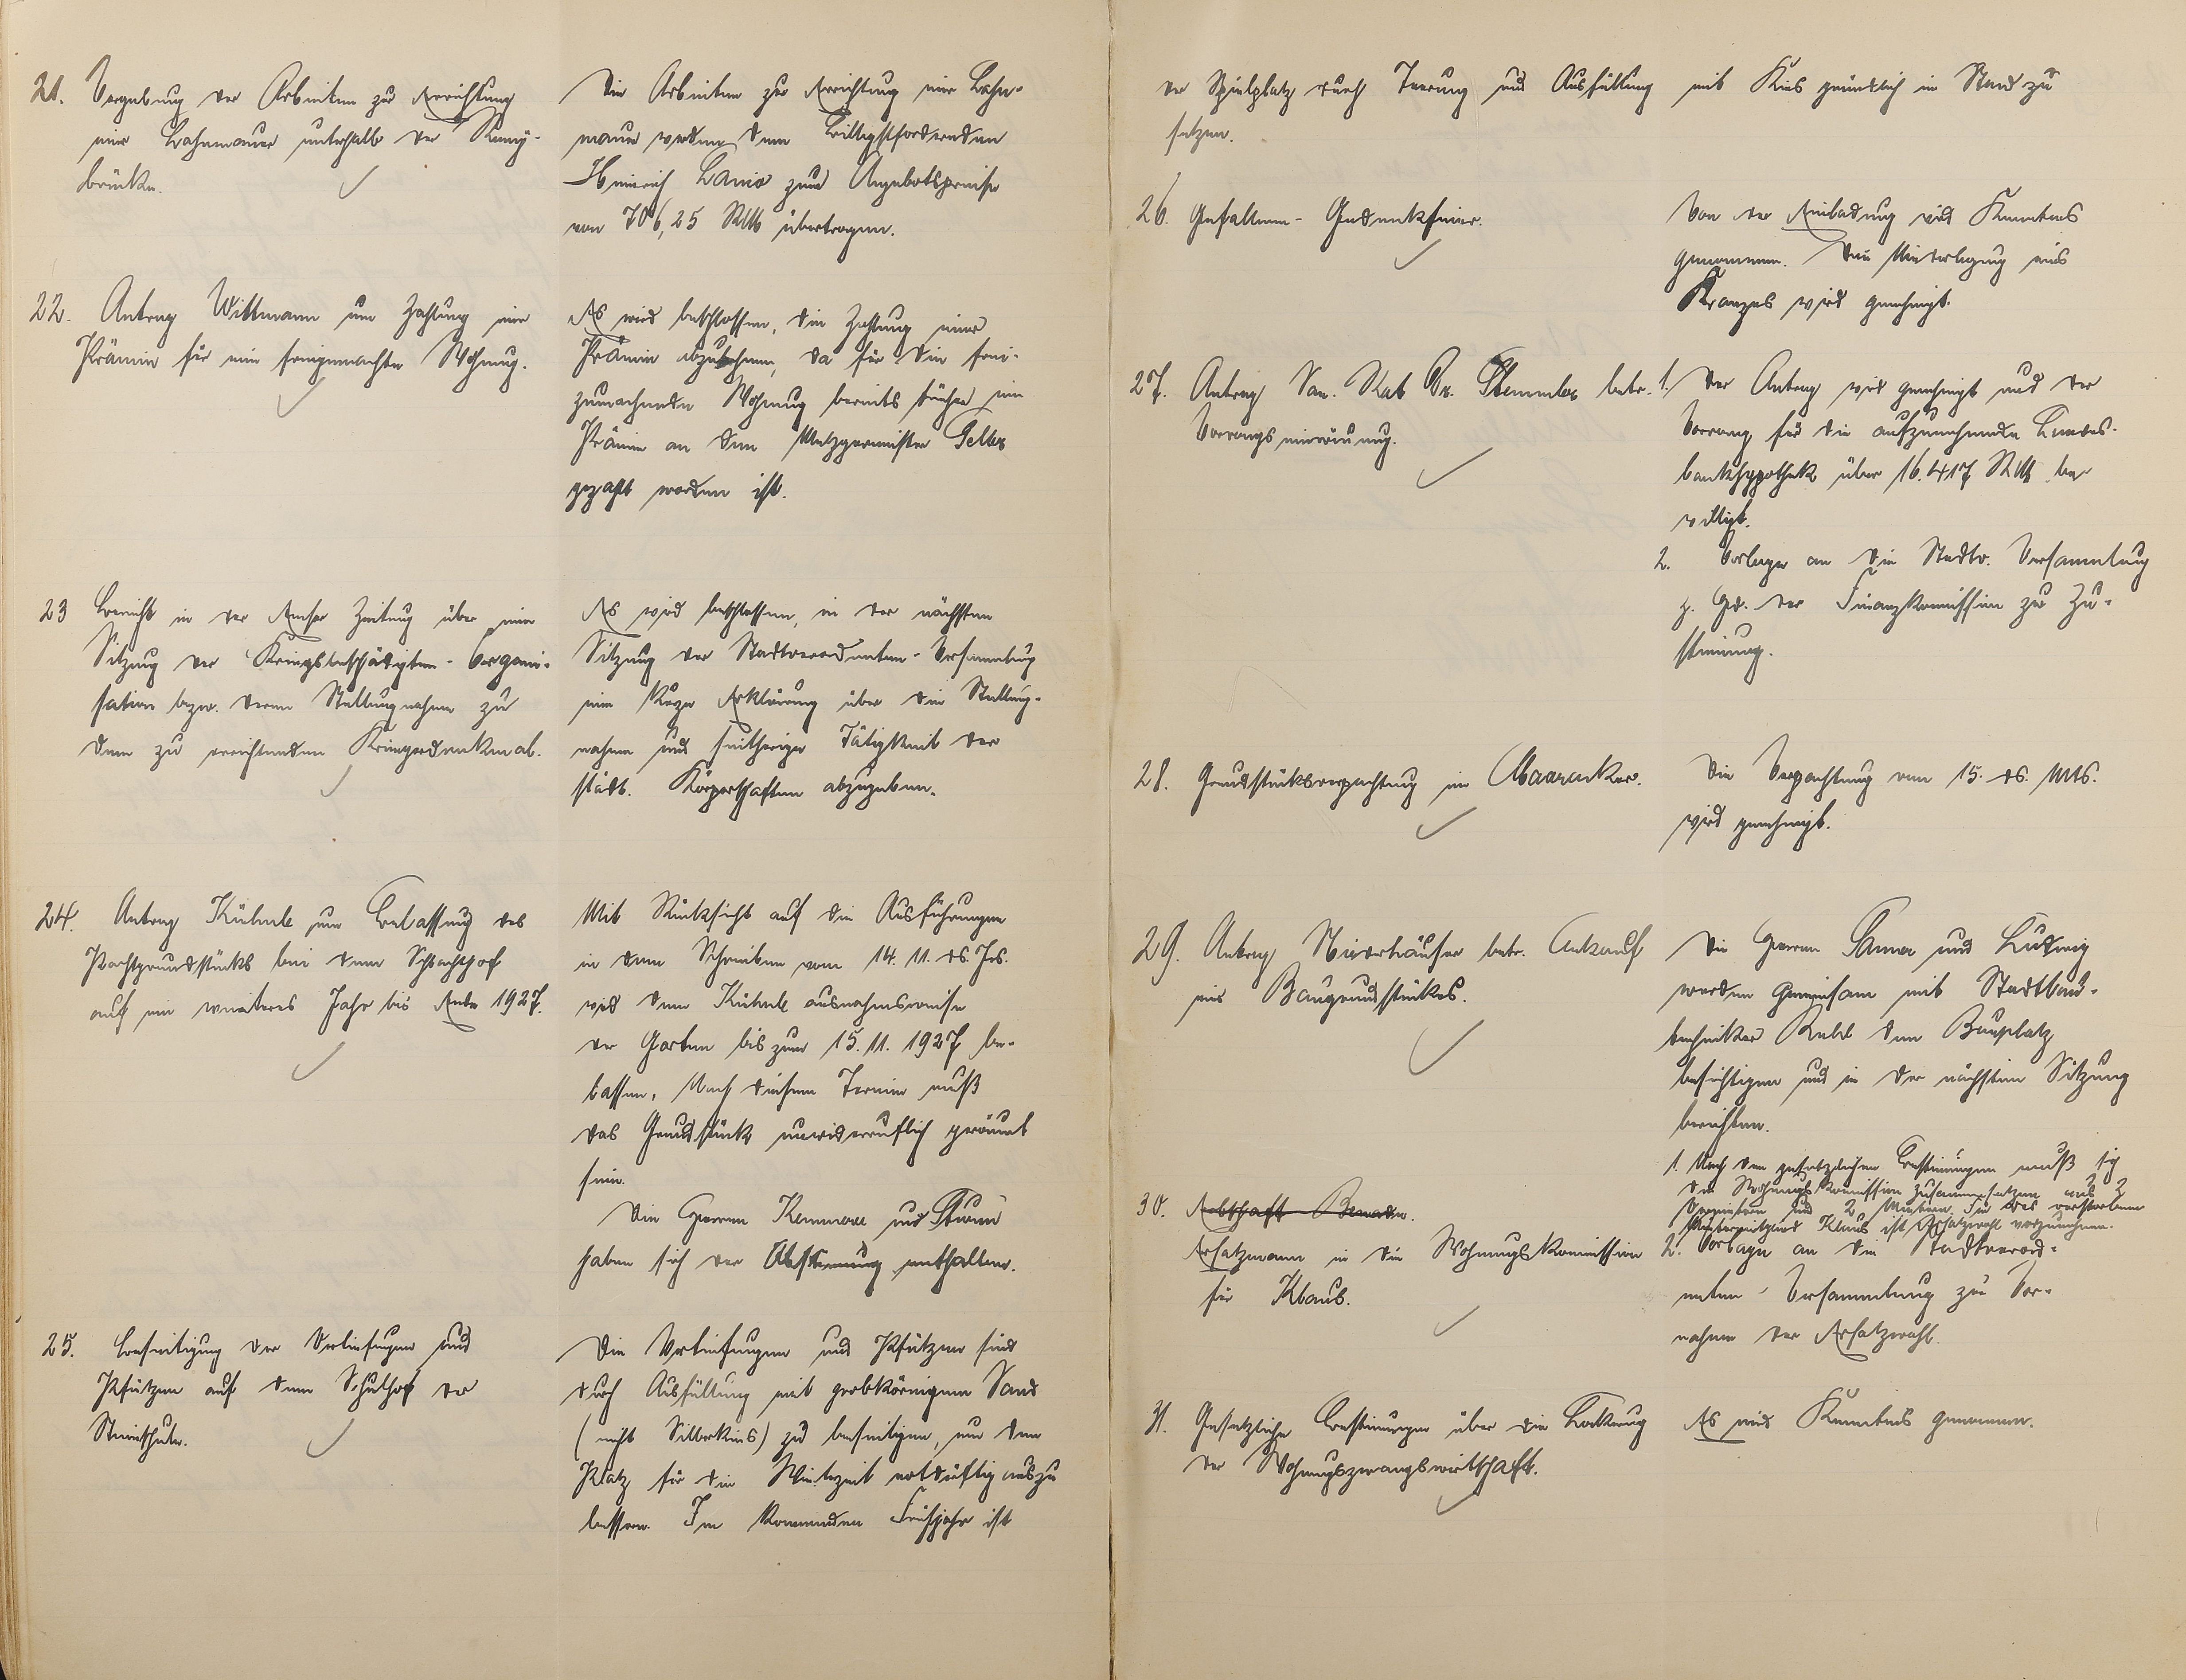 21. Vergebung der Arbeiten zur Errichtung
einer Lahnmauer unterhalb der
brücke.
Die Arbeiten zur Errichtung einer Lahn-
mauer werden dem Billigstfordernden
Heinrich Lanio zum Angebotspreise
von 706,25 RM übertragen.
22. Antrag Wittmann um Zahlung einer
Prämie für eine freigemachte Wohnung.
Es wird beschlossen, die Zahlung einer
Prämie abzulehnen, da für die frei-
zumachende Wohnung bereits früher eine
Prämie an den Metzgermeister
gezahlt worden ist.
23 Bericht in der Emser Zeitung über eine
Sitzung der Kriegsbeschädigten-Organi-
sation bezw. deren Stellungnahme zu
dem zu errichtenden Kriegerdenkmal.
Es wird beschlossen, in der nächsten
Sitzung der Stadtverordneten-Versammlung
eine kurze Erklärung über die Stellung-
nahme und seitherige Tätigkeit der
städt. Körperschaften abzugeben.
24. Antrag Kühnle um Belassung des
Pachtgrundstücks bei dem Schlachthof
auf ein weiteres Jahr bis Ende 1927.
Mit Rücksicht auf die Ausführungen
in dem Schreiben vom 14.11. ds. Js.
wird dem Kühnle ausnahmsweise
der Garten bis zum 15.11.1927 be-
lassen. Nach diesem Termin muß
das Grundstück unwiderruflich geräumt
sein.
Die Herren Kemmerer und Sturm
haben sich der Abstimmung enthalten.
25. Beseitigung der Vertiefungen und
Pfützen auf dem Schulhof der
Steinschule.
Die Vertiefungen und Pfützen sind
durch Ausfüllung mit grobkörnigem Sand
(nicht Silberkies) zu beseitigen, um den
Platz für die Winterzeit notdürftig auszu
bessern. Im kommenden Frühjahr ist
der Spielplatz durch Teerung und Ausfüllung mit Kies gründlich in Stand zu
setzen.
26. Gefallenen-Gedenkfeier.
Von der Einladung wird Kenntnis
genommen. Die Niederlegung eines
Kranzes wird genehmigt.
27. Antrag San. Rat Dr. Stemmler betr.
Vorrangseinräumung.
1. Der Antrag wird genehmigt und der
Vorrang für die aufzunehmende Landes-
bankhypothek über 16.417 RM be
willigt.
2. Vorlage an die Stadtv. Versammlung
z. Hd. der Finanzkommission zur Zu-
stimmung.
28. Grundstücksverpachtung im
Die Verpachtung vom 15. ds. Mts.
wird genehmigt.
29. Antrag Nieverhäuser betr. Ankauf
eines Baugrundstückes.
Die Herren Sauer und Ludwig
werden gemeinsam mit Stadtbau-
techniker den Bauplatz
besichtigen und in der nächsten Sitzung
berichten.
30. Erbschaft
Ersatzmann in die Wohnungskommission
für Klaus.
1. Nach den gesetzlichen Bestimmungen muß sich
die Wohnungskommission zusammensetzen aus 2
Vermietern und 2 Mietern. Für das verstorbene
Mietermitglied Klaus ist Ersatzwahl vorzunehmen.
2. Vorlage an die Stadtverord-
neten-Versammlung zur Vor-
nahme der Ersatzwahl.
31. Gesetzliche Bestimmungen über die Lockerung
der Wohnungszwangswirtschaft.
Es wird Kenntnis genommen.